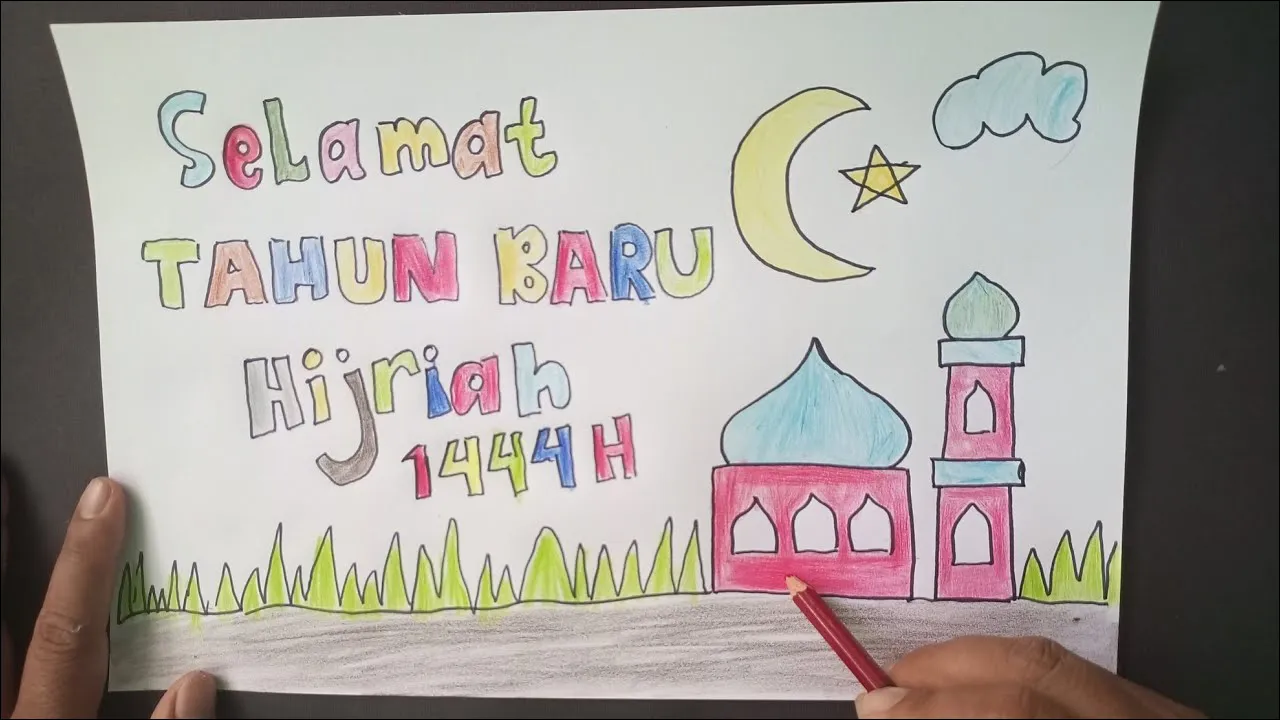 Selamat
TAHUN BARU
Hijriah
1444 H